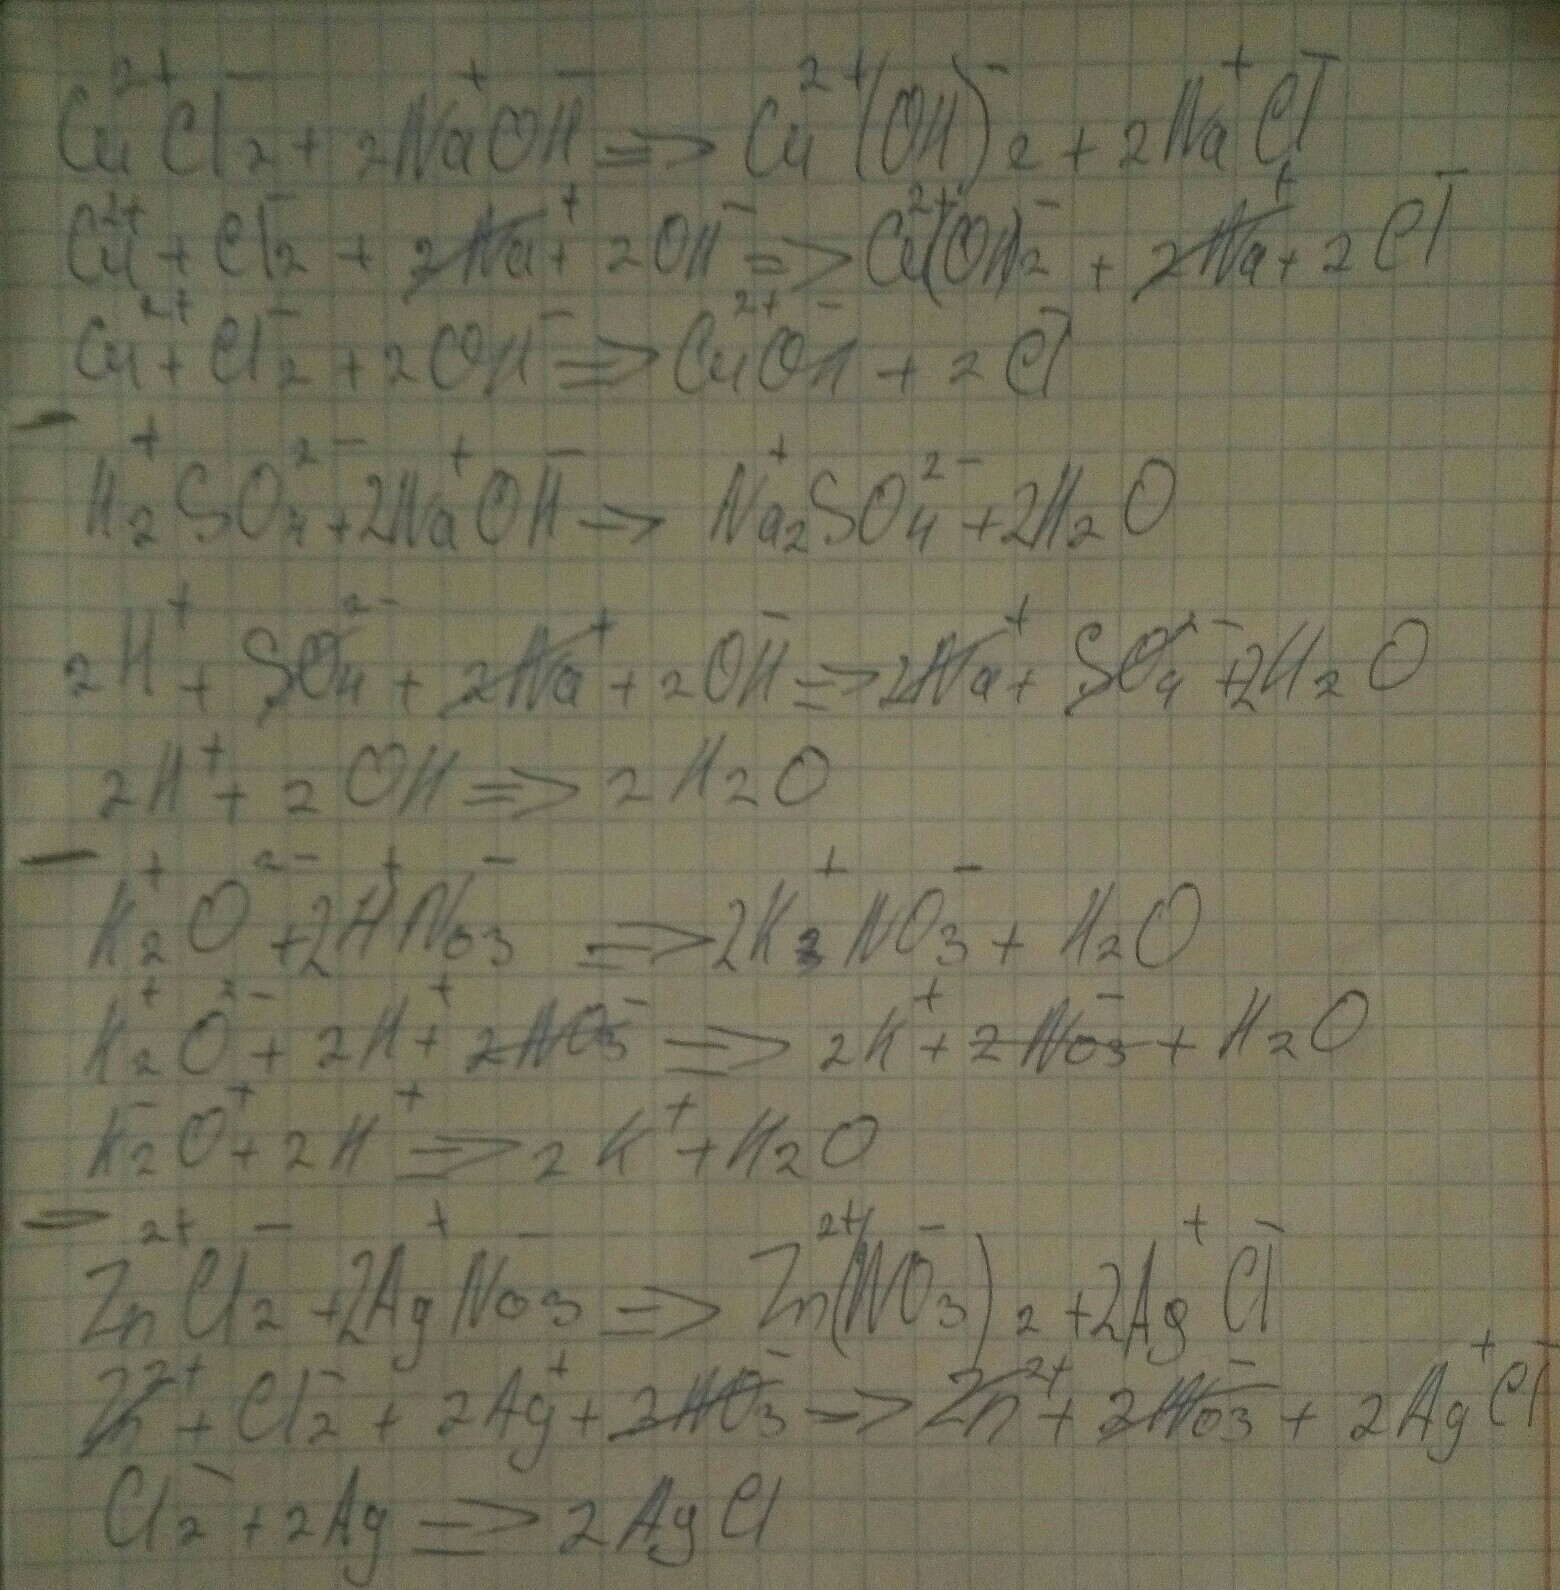 Cu²⁺Cl⁻₂ + 2Na⁺OH⁻ => Cu²⁺(OH)⁻₂ + 2Na⁺Cl⁻
Cu²⁺ + Cl⁻₂ + 2Na⁺ + 2OH⁻ => Cu²⁺(OH)⁻₂ + 2Na⁺ + 2Cl⁻
Cu²⁺ + Cl⁻₂ + 2OH⁻ => Cu²⁺OH⁻ + 2Cl⁻
H⁺₂SO₄²⁻ + 2Na⁺OH⁻ => Na⁺₂SO₄²⁻ + 2H₂O
2H⁺ + SO₄²⁻ + 2Na⁺ + 2OH⁻ => 2Na⁺ + SO₄²⁻ + 2H₂O
2H⁺ + 2OH => 2H₂O
K⁺₂O²⁻ + 2H⁺NO₃⁻ => 2K⁺₂NO₃⁻ + H₂O
K⁺₂O²⁻ + 2H⁺ + 2NO₃⁻ => 2K⁺ + 2NO₃⁻ + H₂O
K⁻₂O⁺ + 2H⁺ => 2K⁺ + H₂O
Zn²⁺Cl⁻₂ + 2Ag⁺NO₃⁻ => Zn²⁺(NO₃⁻)₂ + 2Ag⁺Cl⁻
Zn²⁺ + Cl⁻₂ + 2Ag⁺ + 2NO₃⁻ => Zn²⁺ + 2NO₃⁻ + 2Ag⁺Cl⁻
Cl⁻₂ + 2Ag => 2AgCl